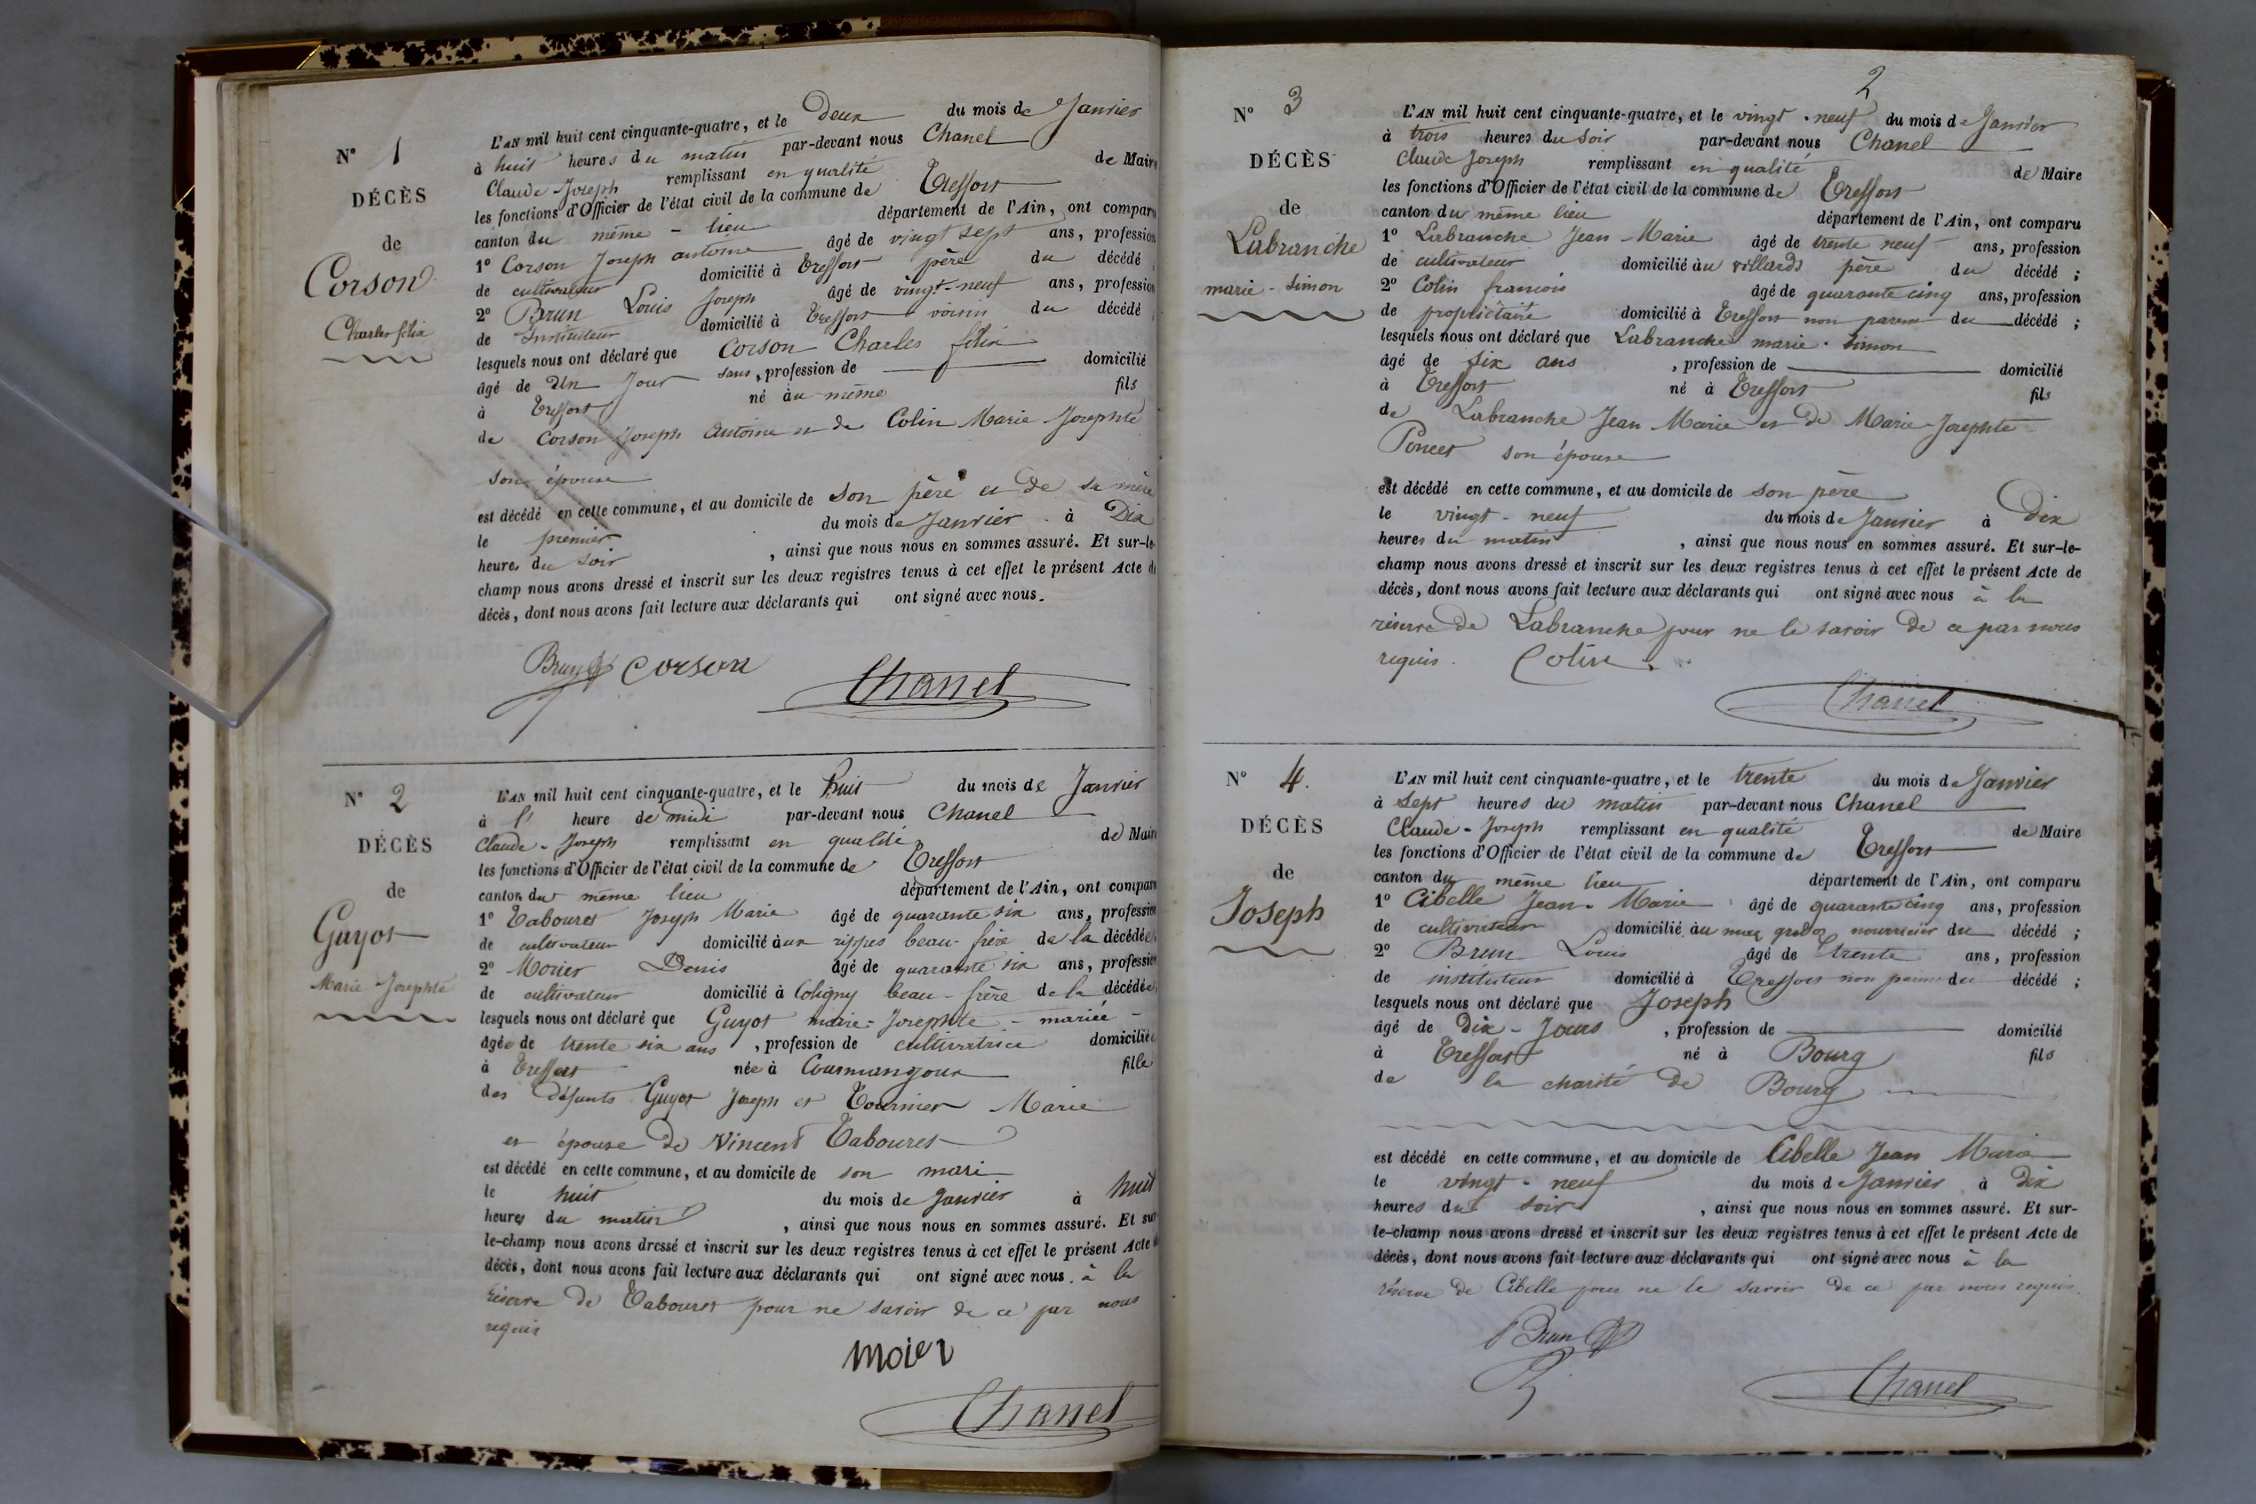 N° 1
DÉCÈS
de
Corson
Charles félix
L'AN mil huit cent cinquante-quatre, et le Deux du mois de Janvier
à huit heures du matin par-devant nous Chanel
Claude-Joseph remplissant en qualité de Maire
les fonctions d'Officier de l'état civil de la commune de Treffort
canton du même-lieu département de l'Ain, ont comparu
1° Corson Joseph antoine âgé de vingt sept ans, profession
de cultivateur domicilié à Treffort père du décédé ;
2° Brun Louis Joseph âgé de vingt-neuf ans, profession
de Instituteur domicilié à Treffort voisin du décédé ;
lesquels nous ont déclaré que Corson Charles félix
âgé de Un Jour sans, profession de domicilié
à Treffort né au même fils
de Corson Joseph Antoine et de Colin Marie-Josephte
son épouse
est décédé en cette commune, et au domicile de son père et de sa mère
le premier du mois de Janvier à Dix
heures du soir , ainsi que nous nous en sommes assuré. Et sur-le-
champ nous avons dressé et inscrit sur les deux registres tenus à cet effet le présent Acte de
décès, dont nous avons fait lecture aux déclarants qui ont signé avec nous.
Brun Corson Chanel
N° 2
DÉCÈS
de
Guyot
Marie Josephte
L'AN mil huit cent cinquante-quatre, et le huit du mois de Janvier
à l' heure de midi par-devant nous Chanel
Claude-Joseph remplissant en qualité de Maire
les fonctions d'Officier de l'état civil de la commune de Treffort
canton du même lieu département de l'Ain, ont comparu
1° Tabouret Joseph Marie âgé de quarante six ans, profession
de cultivateur domicilié aux rippes beau-frère de la décédée ;
2° Morier Denis âgé de quarante six ans, profession
de cultivateur domicilié à Coligny beau-frère de la décédée ;
lesquels nous ont déclaré que Guyot marie-Josephte - mariée -
âgée de trente six ans , profession de cultivatrice domiciliée
à Treffort née à Courmangoux fille
des défunts Guyot Joseph et Tournier Marie
et épouse de Vincent Tabouret
est décédé en cette commune, et au domicile de son mari
le huit du mois de Janvier à huit
heures du matin , ainsi que nous nous en sommes assuré. Et sur-
le-champ nous avons dressé et inscrit sur les deux registres tenus à cet effet le présent Acte de
décès, dont nous avons fait lecture aux déclarants qui ont signé avec nous. à la
réserve de Tabouret pour ne savoir de ce par nous
requis
moier
Chanel
2
N° 3
DÉCÈS
de
Labranche
marie-Simon
L'AN mil huit cent cinquante-quatre, et le vingt-neuf du mois de Janvier
à trois heures du soir par-devant nous Chanel
Claude Joseph remplissant en qualité de Maire
les fonctions d'Officier de l'état civil de la commune de Treffort
canton du même lieu département de l'Ain, ont comparu
1° Labranche Jean-Marie âgé de trente neuf ans, profession
de cultivateur domicilié au villards père du décédé ;
2° Colin francois âgé de quarante cinq ans, profession
de propriétaire domicilié à Treffort non parent du décédé ;
lesquels nous ont déclaré que Labranche marie-Simon
âgé de six ans , profession de domicilié
à Treffort né à Treffort fils
de Labranche Jean Marie et de Marie-Josephte
Poncet son épouse
est décédé en cette commune, et au domicile de son père
le vingt-neuf du mois de Janvier à Dix
heures du matin , ainsi que nous nous en sommes assuré. Et sur-le-
champ nous avons dressé et inscrit sur les deux registres tenus à cet effet le présent Acte de
décès, dont nous avons fait lecture aux déclarants qui ont signé avec nous à la
réserve de Labranche pour ne le savoir de ce par nous
requis. Colin
Chanel
N° 4.
DÉCÈS
de
Joseph
L'AN mil huit cent cinquante-quatre, et le trente du mois de Janvier
à sept heures du matin par-devant nous Chanel
Claude-Joseph remplissant en qualité de Maire
les fonctions d'Officier de l'état civil de la commune de Treffort
canton du même lieu département de l'Ain, ont comparu
1° Cibelle Jean-Marie âgé de quarante cinq ans, profession
de cultivateur domicilié au nourricier du décédé ;
2° Brun Louis âgé de trente ans, profession
de instituteur domicilié à Treffort non parent du décédé ;
lesquels nous ont déclaré que Joseph
âgé de Dix-Jours , profession de domicilié
à Treffort né à Bourg fils
de la charité de Bourg
est décédé en cette commune, et au domicile de Cibelle Jean Marie
le vingt-neuf du mois de Janvier à Dix
heures du soir , ainsi que nous nous en sommes assuré. Et sur-
le-champ nous avons dressé et inscrit sur les deux registres tenus à cet effet le présent Acte de
décès, dont nous avons fait lecture aux déclarants qui ont signé avec nous à la
réserve de Cibelle pour ne le savoir de ce par nous requis.
Brun
Chanel